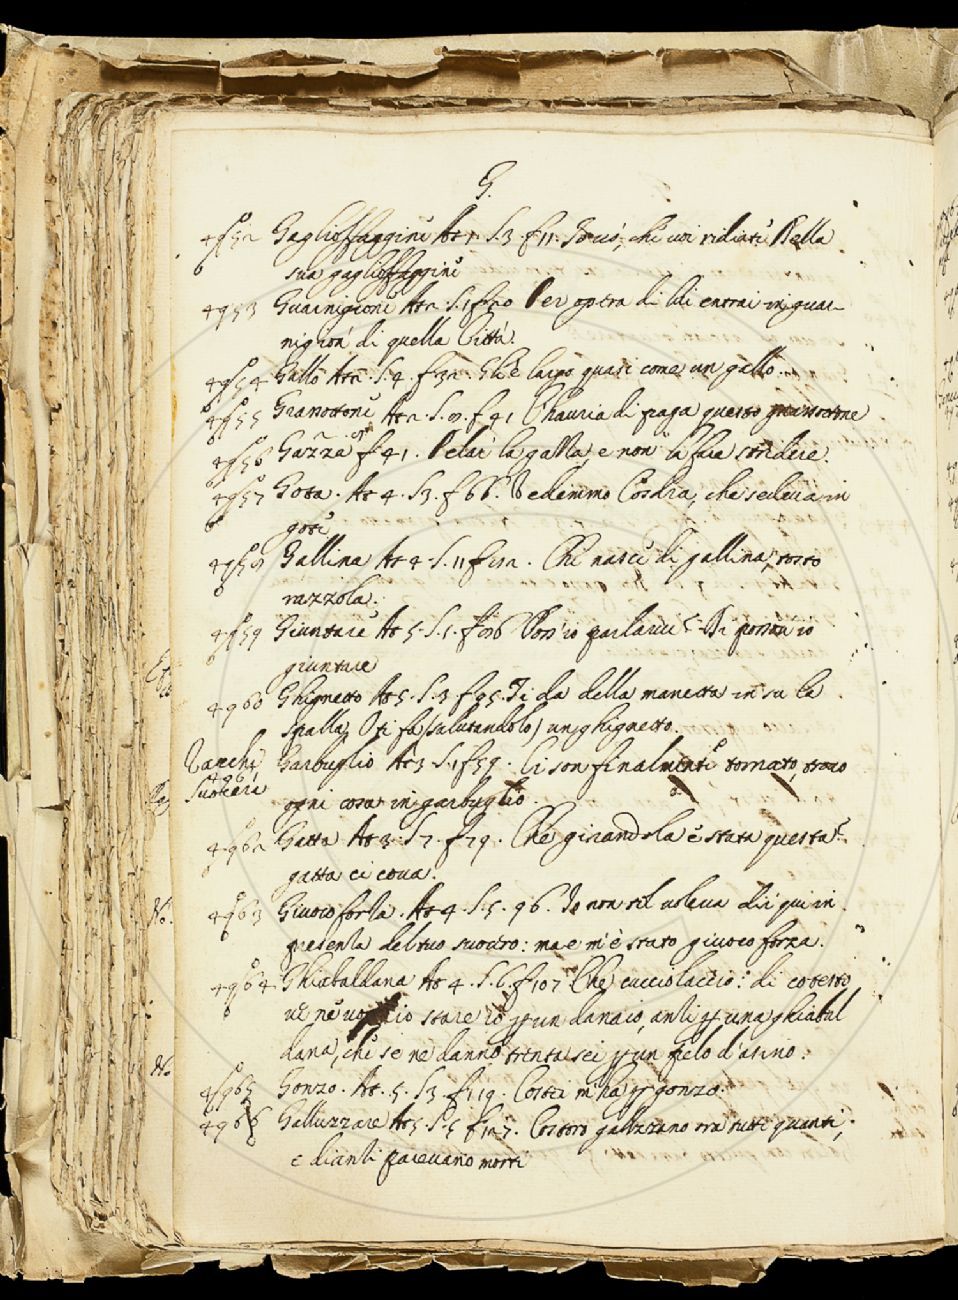 G.
4952 Gaglioffaggine At 1. S.3. f 11. Io ciò, che voi ridiate Della
sua gaglioffaggine
4953 Guarnigione At 2 S.1 f 20 Per opera di lui entrai in guar-
nigion' di quella Città.
4954 Gallo At 2. S. 4. f 32. Gli è largo quasi come un gallo...
4955 Granottone At 2. S. 9. f 41 L'hauria di paga questo granottone
4956 Gazza f 41. Pelai la gazza, e non la fare stridere.
4957 Gota. At 4. S 3. f 66. Vedemmo Cordia, che sedeva in
gote
4958 Gallina At 4. S. 11 f 92. Chi nasce di gallina, tosto
razzola.
4959 Giuntare At 5. S. 5. f 96 Poss'io parlarvi? Di poss'io
giuntare
4960 Ghignetto At 5. S. 3. f 95. Ti da della manetta in su le
spalla, O ti fa (salutandolo) un ghignetto.
Varchi
4961 Garbuglio At 3 S. 1 f 59. Ci son finalmente tornato, trovo
Suocera
ogni cosa in garbuglio.
4962 Gatta At 3. S 7. f 79. Che girandola è stata questa?
gatta ci cova.
No. 4963 Giuoco forza. At 4. S. 5. 96. Io non tel voleva dir qui in
presenza del tuo suocero: ma e' m'è stato giuoco forza.
4964 Ghiabaldana At 4. S. 6. f 107 Che cucciolaccio: di coresto
ve ne voglio stare io p un danaio, anzi p una ghiabal
dana, che se ne danno trentasei p un pelo d'asino.
No
4965 Gonzo. At. 5. S 3. f 119. Costei m'ha p gonzo.
4966 Galluzzare At 5 S. 5 f 125. Costoro galluzzano ora tutti quanti;
e dianzi parevano morti